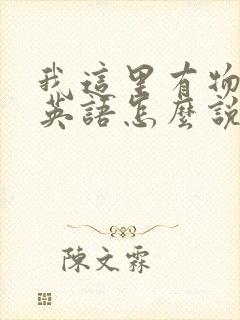 我這里有物
英語怎麼說
陳文霖